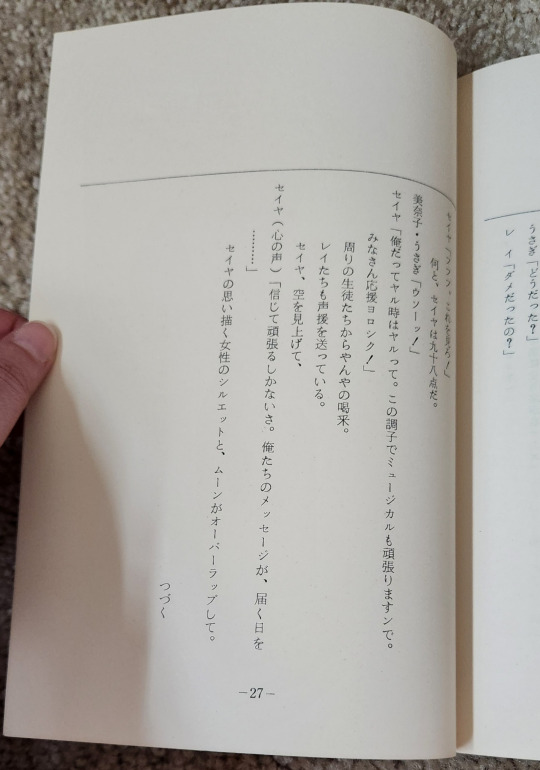 うさぎ「どうだった？」
レイ「ダメだったの？」
セイヤ「フフン、これを見ろ！」
何と、セイヤは九十八点だ。
美奈子・うさぎ「ウッーッ！」
セイヤ「俺だってヤル時はヤルって。この調子でミュージカルも頑張りますンで。
みなさん応援ヨロシク！」
周りの生徒たちからやんやの喝采。
レイたちも声援を送っている。
セイヤ、空を見上げて、
セイヤ（心の声）「信じて頑張るしかないさ。俺たちのメッセージが、届く日を
…………」
セイヤの思い描く女性のシルエットと、ムーンがオーバーラップして。
つづく
－27－